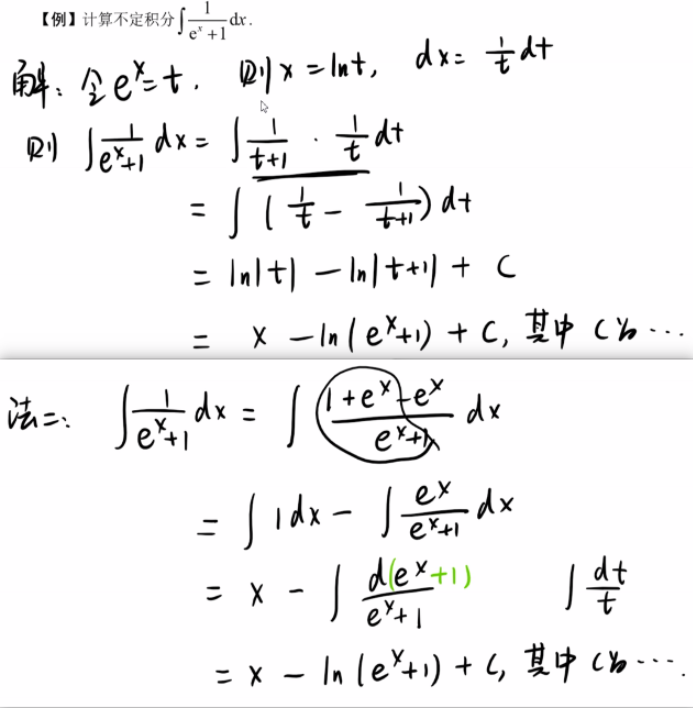 【例】计算不定积分∫1/(eˣ+1) dx.
解：令eˣ=t, 则x=lnt, dx=1/t dt
则 ∫1/(eˣ+1) dx = ∫1/(t+1) · 1/t dt
= ∫(1/t − 1/(t+1)) dt
= ln|t| − ln|t+1| + C
= x − ln(eˣ+1) + C, 其中C为···
法二： ∫1/(eˣ+1) dx = ∫(1+eˣ−eˣ)/(eˣ+1) dx
= ∫1dx − ∫eˣ/(eˣ+1) dx
= x − ∫d(eˣ+1)/(eˣ+1) ∫dt/t
= x − ln(eˣ+1) + C, 其中C为···.